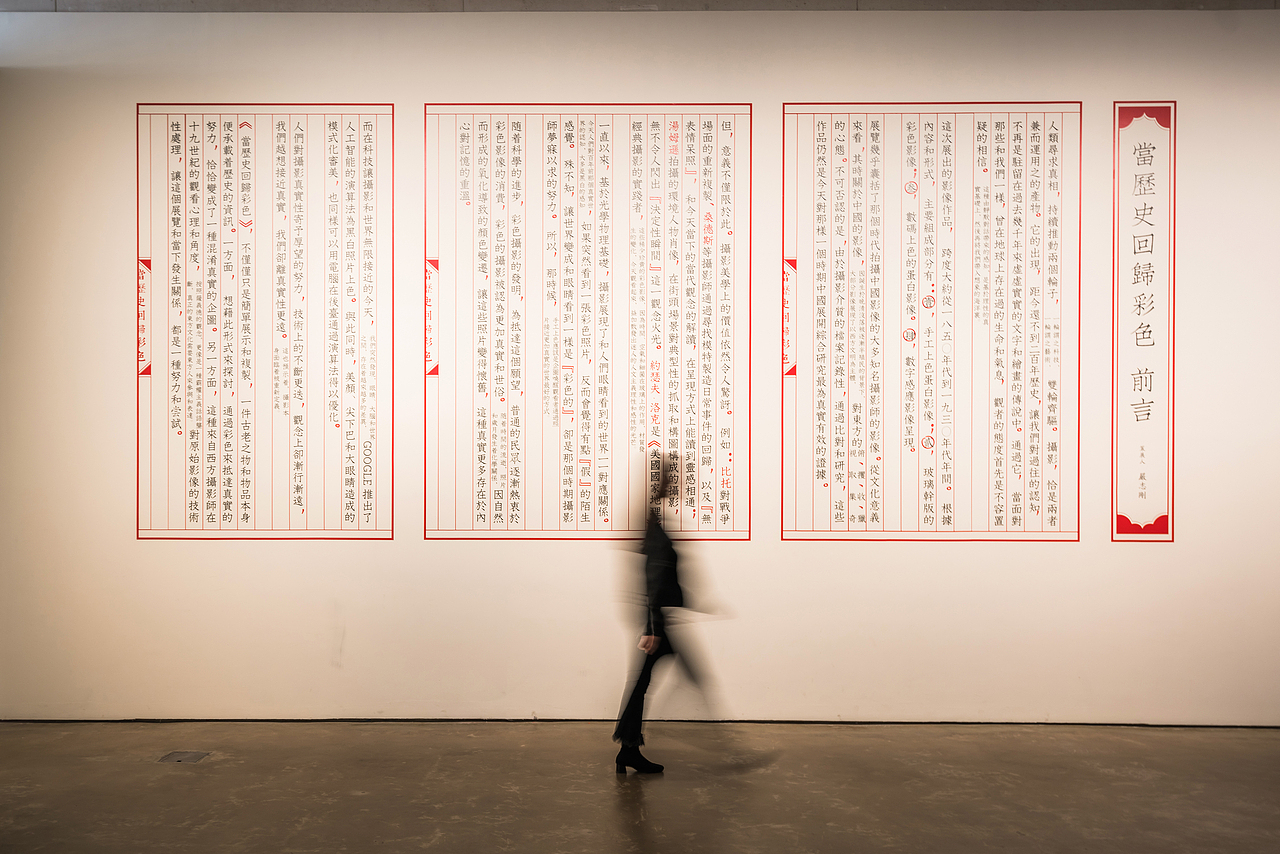 當歷史回歸彩色 前言
策展人 嚴志剛
人類尋求真相，持續推動兩個輪子，一輪謂之科技，一輪謂之藝術。雙輪齊驅。攝影，恰是兩者
兼而運用之的產物。它的出現，距今還不到二百年歷史，讓我們對過往的認知，
不再是駐留在過去幾千年來虛虛實實的文字和繪畫的傳說中。通過它，當面對
那些和我們一樣，曾在地球上存在過的生命和氣息，觀者的態度首先是不容置
疑的相信。
這次展出的影像作品，跨度大約從一八五〇年代到一九三〇年代年間。根據
內容和形式，主要組成部分有：壹，手工上色蛋白影像；貳，玻璃幹版的
彩色影像；叁，數碼上色的蛋白影像。肆，數字感應影像呈現。
展覽幾乎囊括了那個時代拍攝中國影像的大多知名攝影師的影像。從文化意義
來看，其時關於中國的影像，對東方的俯、攫、收、獵、視、取、集、奇
的心態。不可否認的是，由於攝影介質的檔案記錄性，通過比對和研究，這些
作品仍然是今天對那樣一個時期中國展開綜合研究最為真實有效的證據。
但，意義不僅限於此。攝影美學上的價值依然令人驚訝。例如：比托對戰爭
場面的重新複製、桑德斯等攝影師通過尋找模特製造日常事件的回歸，以及『無
表情呆照』，和今天當下的當代觀念的解讀，在呈現方式上能讀到靈感相通；
湯姆遜拍攝的環境人物肖像，在街頭場景對典型性的抓取和構圖構成的攝影，
無不令人閃出『決定性瞬間』這一觀念火光。約瑟夫·洛克是《美國國家地理
經典攝影的實踐者，
一直以來，基於光學物理基礎，攝影展現了和人們眼睛看到的世界一一對應關係。
如果突然看到一張彩色照片，反而會覺得有點『假』的陌生
感覺。殊不知，讓世界變成和眼睛看到一樣是『彩色的』，卻是那個時期攝影
師夢寐以求的努力。所以，那時候，
隨着科學的進步，彩色攝影的發明，為抵達這個願望，普通的民眾逐漸熱衷於
彩色影像的消費，彩色的攝影被認為更加真實和世俗。因自然
而形成的氧化導致的顏色變遷，讓這些照片變得懷舊，這種真實更多存在於內
心對記憶的重溫。
而在科技讓攝影和世界無限接近的今天，GOOGLE推出了
人工智能的演算法為黑白照片上色。與此同時，美顏、尖下巴和大眼睛造成的
模式化審美，也同樣可以用電腦在後臺通過演算法得以優化。
人們對攝影真實性寄予厚望的努力，技術上的不斷更迭，觀念上卻漸行漸遠，
我們越想接近真實，我們卻離真實性更遠。
《當歷史回歸彩色》，不僅僅只是簡單展示和複製，一件古老之物和物品本身
便承載着歷史的資訊。一方面，想藉此形式來探討，通過彩色來抵達真實的
努力，恰恰變成了一種混淆真實的企圖。另一方面，這種來自西方攝影師在
十九世紀的觀看心理和角度，對原始影像的技術
性處理，讓這個展覽和當下發生關係，都是一種努力和嘗試。
當歷史回歸彩色
當歷史回歸彩色